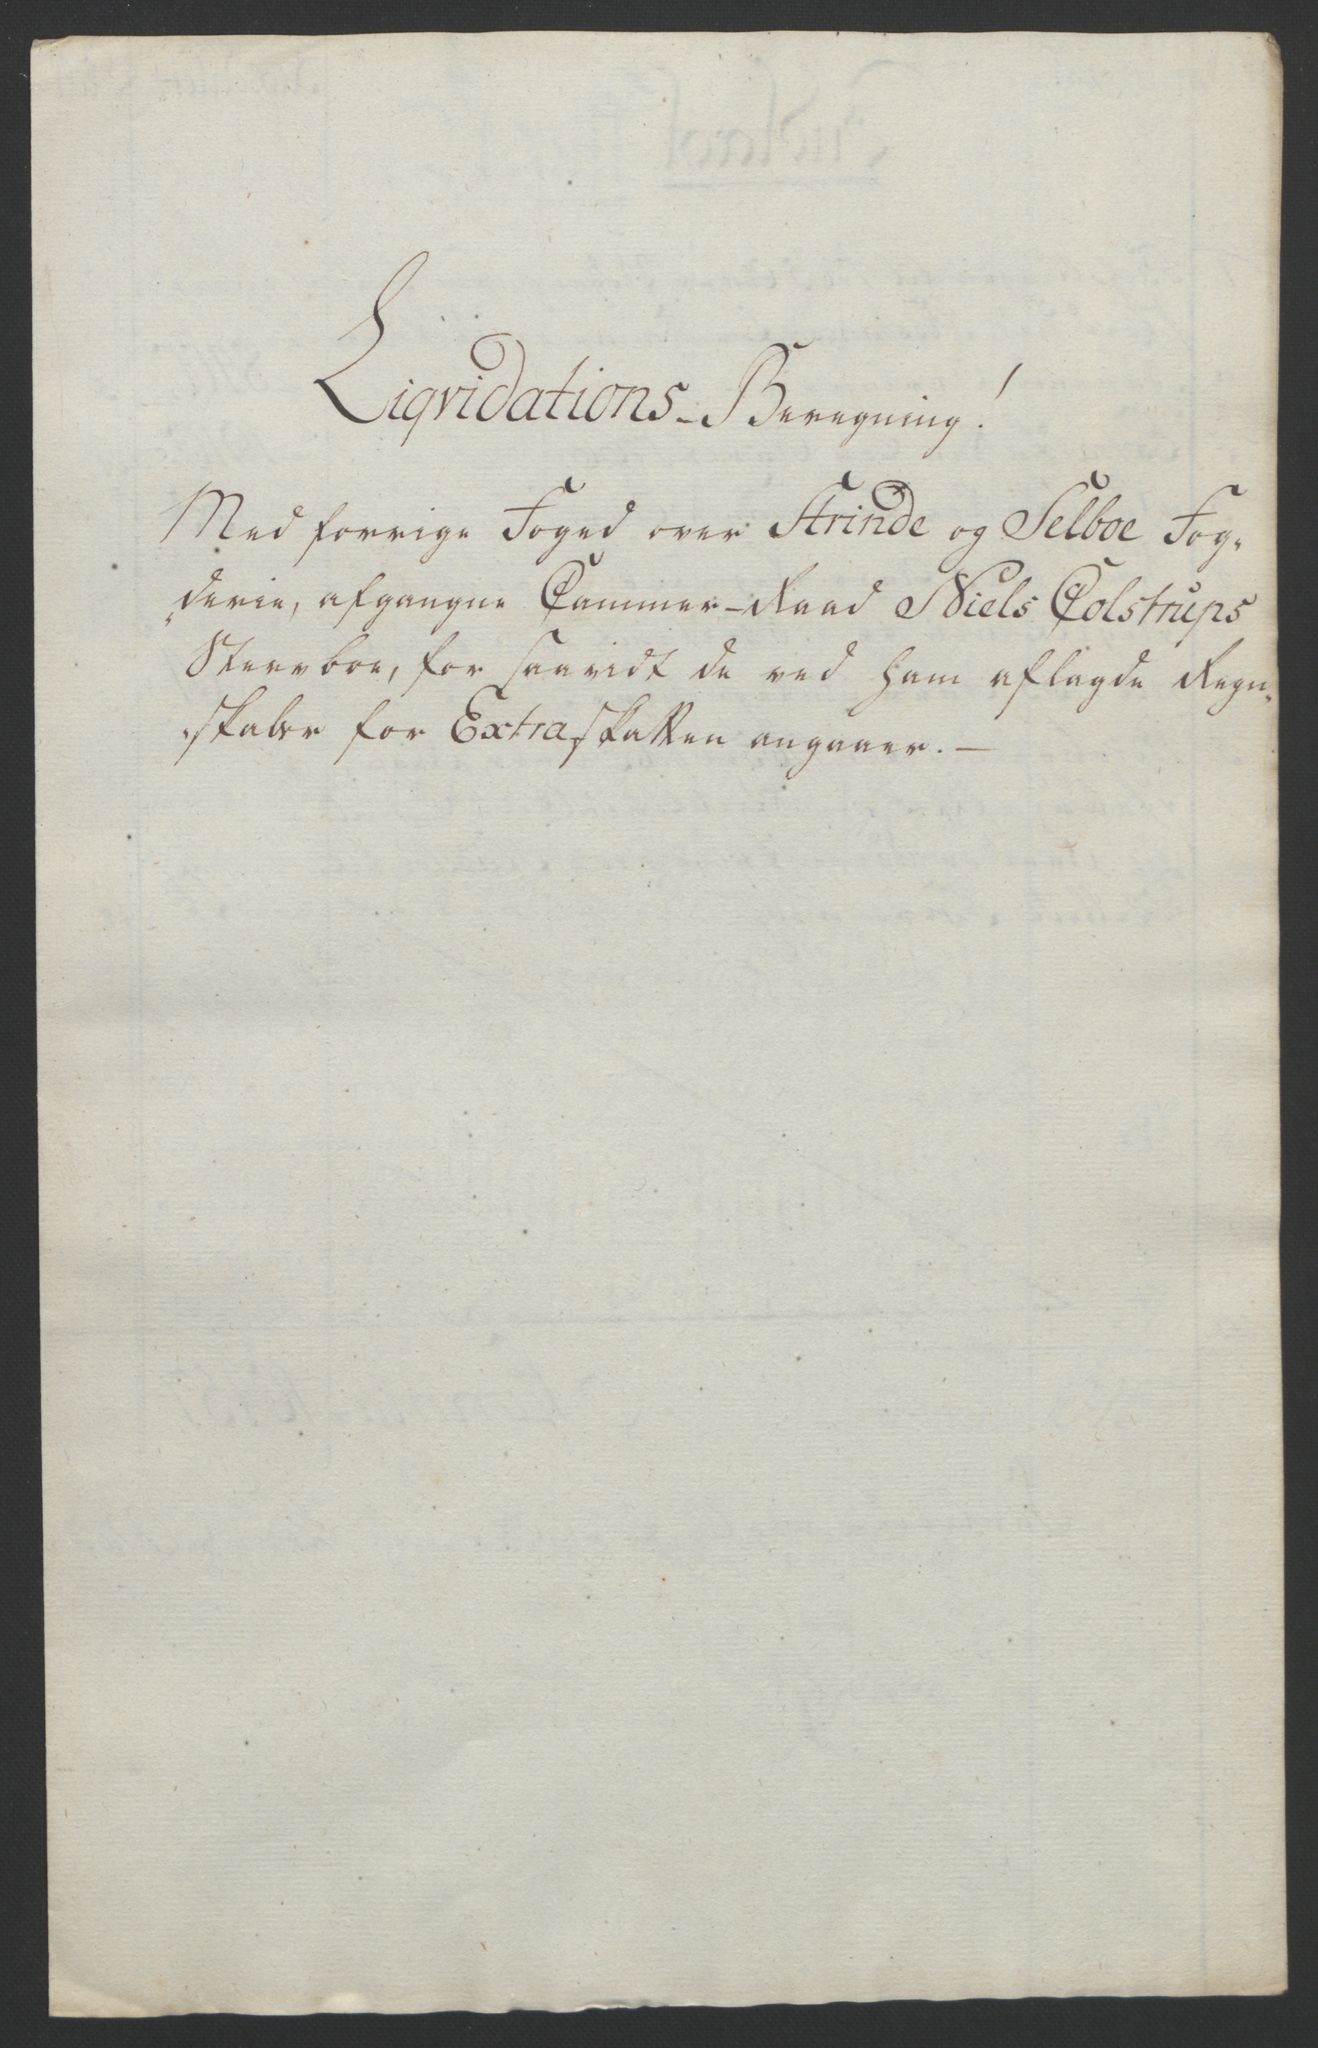 Liqvidations-Beregning!
Med forrige Foged over Strinde og Selboe Fog-
derie, afgangne Cammer-Raad Niels Colstrups
Stervboe, for saavidt de ved ham aflagde Regn-
skaber for Extraskatten angaaer.—